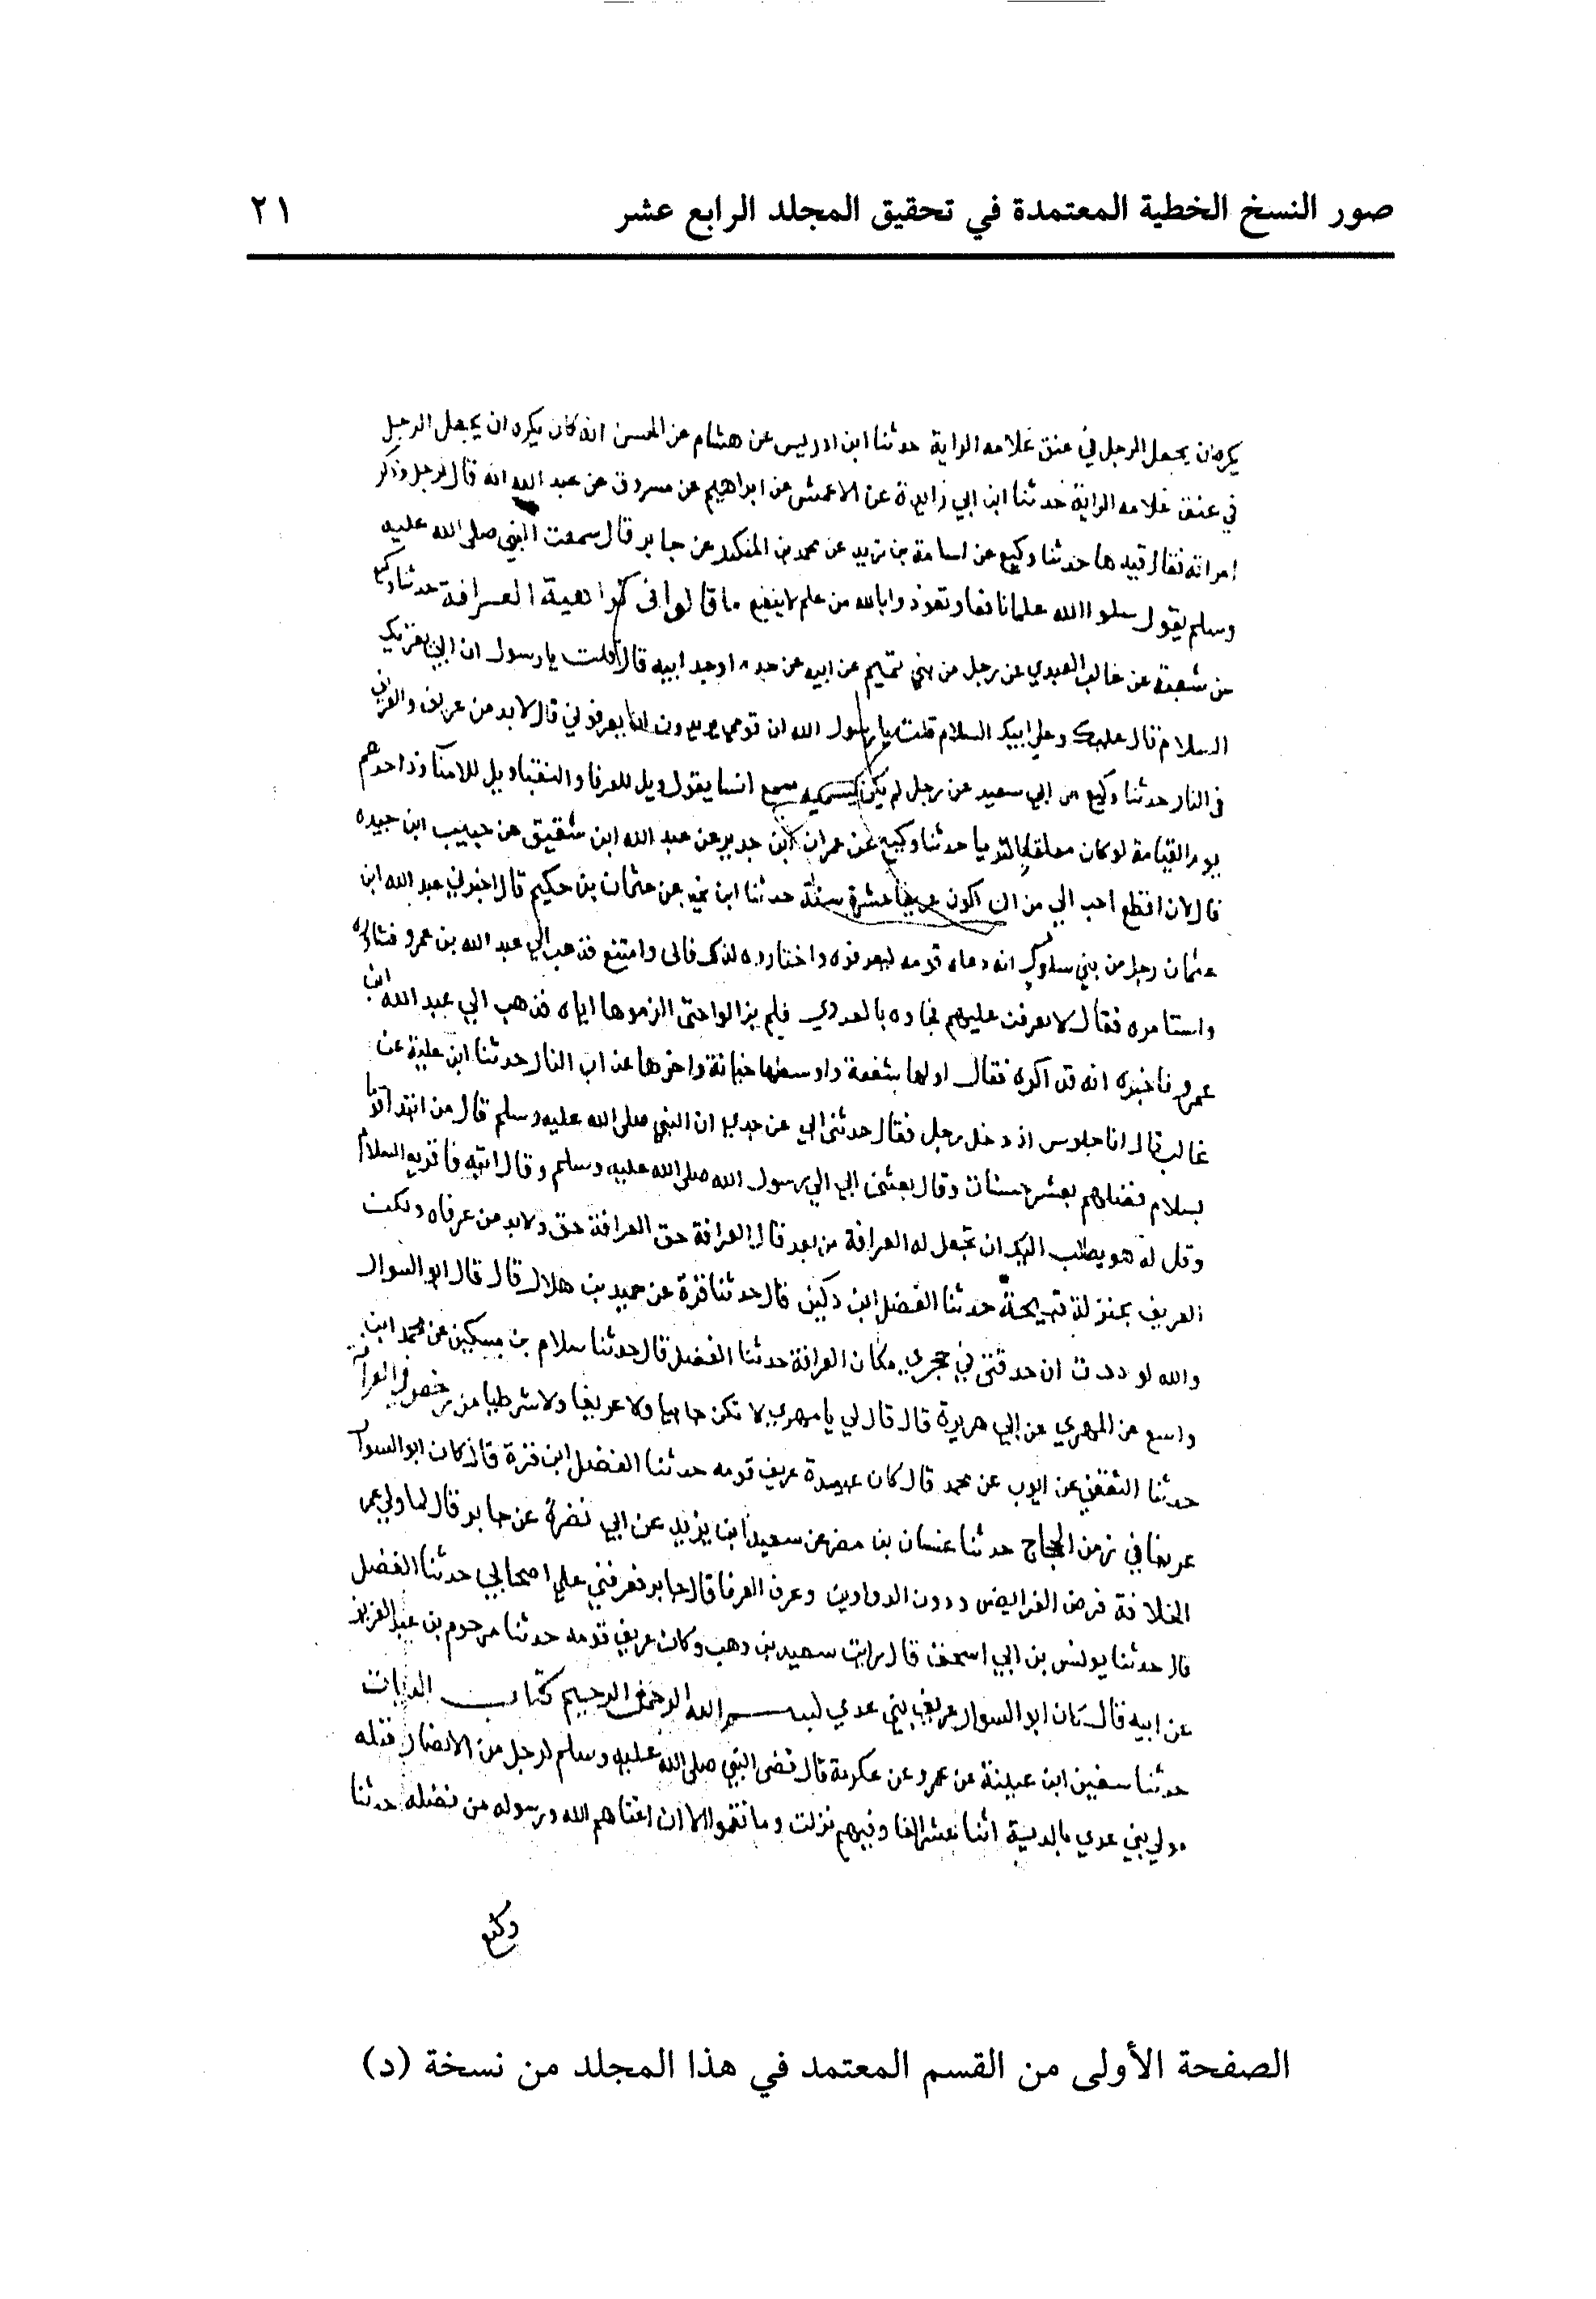 صور النسخ الخطية المعتمدة في تحقيق المجلد الرابع عشر ٢١
يكره ان يجعل الرجل في عنق غلامه الراية حدثنا ابن ادريس عن هشام عن الحسن انه كان يكره ان يجعل الرجل
في عنق غلامه الراية حدثنا ابن ابي زايدة عن الاعمش عن ابراهيم عن مسروق عن عبد الله انه قال لرجل وذكر
امراته فقال قيدها حدثنا وكيع عن اسامة بن زيد عن محمد بن المنكدر عن جابر قال سمعت النبي صلى الله عليه
وسلم يقول سلوا الله علما نافعا وتعوذوا بالله من علم لا ينفع ما قالوا في كراهية العرافة حدثنا وكيع
عن شعبة عن غالب العبدي عن رجل من بني تميم عن ابيه عن جده او جد ابيه قال قلت يا رسول ان ابي يقريك
السلام قال عليك وعلي ابيك السلام قلت يا رسول الله ان قومي يريدون ان يعرفوني قال لا بد من عريف والعريف
في النار حدثنا وكيع عن ابي سعيد عن رجل لم يكن يسميه سمع انسا يقول ويل للعرفا والنقبا ويل للامنا ود احدهم
يوم القيامة لو كان معلقا بالثريا حدثنا وكيع عن عمران ابن حدير عن عبد الله ابن شقيق عن حبيب ابن حيده
قال لان اقطع احب الي من ان اكون عريفا عشرة سنة حدثنا ابن نمير عن عثمان بن حكيم قال اخبرني عبد الله ابن
عثمان رجل من بني سلول انه دعاه قومه ليعرفوه واختاروه لذلك فابى وامتنع فذهب الي عبد الله بن عمرو فشاوره
واستامره فقال لا تعرفن عليهم فجاوه بالعدوي فلم يزالوا حتى الزموها اياه فذهب الي عبد الله ابن
عمرو فاخبره انه قد اكره فقال اولها شفعة واوسطها خيانة واخرها عذاب النار حدثنا ابن علية عن
غالب قال انا جلوس اذ دخل رجل فقال حدثني ابي عن جدي ان النبي صلى الله عليه وسلم قال من ابتدا قوما
بسلام فضلهم بعشر حسنات وقال بعثني ابي الي رسول الله صلى الله عليه وسلم وقال ايته فاقريه السلام
وقل له هو يطلب اليك ان تجعل له العرافة من بعد قال العرافة حق العرافة حق ولا بد من عرفاه ولكن
العريف بمنزلة قبيحة حدثنا الفضل ابن دكين قال حدثنا قرة عن حميد بن هلال قال قال ابو السوار
والله لوددت ان حدقتي في حجري مكان العرافة حدثنا الفضل قال حدثنا سلام بن مسكين عن محمد ابن
واسع عن المهري عن ابي هريرة قال قال لي يا مهري لا تكن جابيا ولا عريفا ولا شرطيا من رخص في العرافة
حدثنا الثقفي عن ايوب عن محمد قال كان عبيدة عريف قومه حدثنا الفضل ابن قرة قال كان ابو السوار
عريفا في زمن الحجاج حدثنا غسان بن مضر عن سعيد ابن يزيد عن ابي نضرة عن جابر قال لما ولي عمر
الخلافة فرض الفرايض ودون الدواوين وعرف العرفا قال جابر فعرفني علي اصحابي حدثنا الفضل
قال حدثنا يونس بن ابي اسحق قال رايت سعيد بن وهب وكان عريف قومه حدثنا مرحوم بن عبد العزيز
عن ابيه قال كان ابو السوار عريف بني عدي بسم الله الرحمن الرحيم كتاب الديات
حدثنا سفين ابن عيينة عن عمرو عن عكرمة قال قضى النبي صلى الله عليه وسلم لرجل من الانصار قتله
مولي بني عدي بالدية اثنا عشر الفا وفيهم نزلت وما نقموا الا ان اغناهم الله ورسوله من فضله حدثنا
وكيع
الصفحة الأولى من القسم المعتمد في هذا المجلد من نسخة (د)